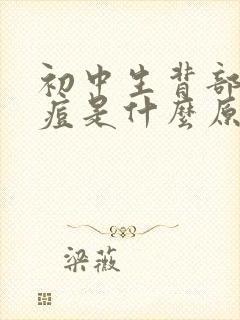 初中生背部
痘是什麼原
梁薇